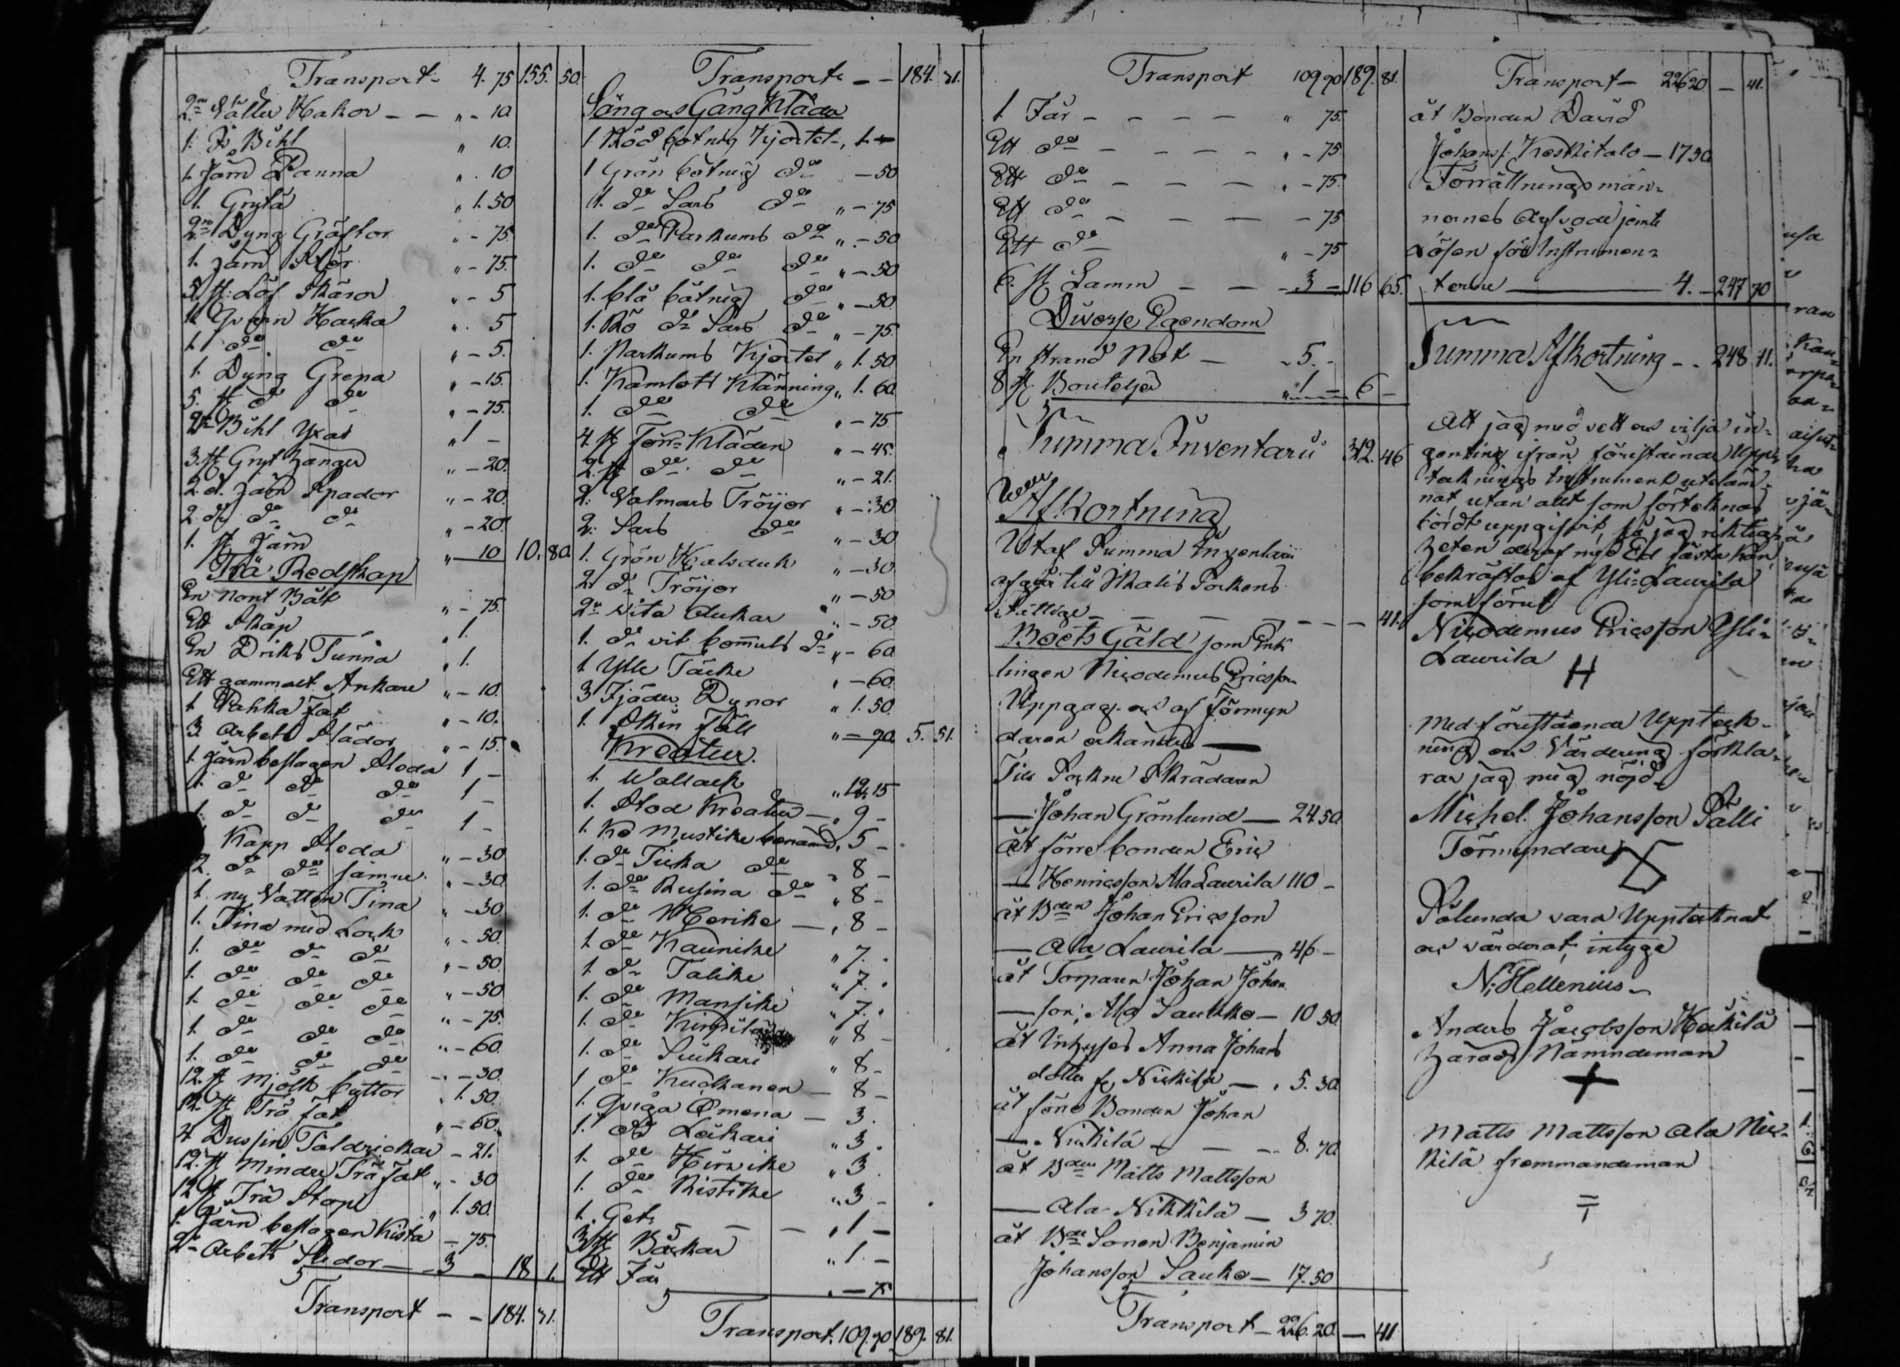 Transport 4. 75 155. 50
2ne Hakor " - 10
1. Bihl " 10.
1. Järn Panna " . 10
1. Gryta " 1.50
2ne Dyng Gräftor " - 75
1. Järn Stör " - 75.
5 st. Löf Skäror " - 5
1. Hacka " . 5
1. do do " - 5.
1. Dyng Grepa " - 15.
5. st do do " - 75.
2ne Bihl Yxor " 1 -
3. st Gryt Hänger " - 20.
2 st. Järn Spador " - 20
2 st do do " - 20
1. st Järn " - 10 10. 80
Trä Redskap
En Nont Båt " - 75.
Ett Skåp " 1.
En Driks Tunna " 1.
Ett gammalt Ankare " - 10.
1. Fat " - 10.
3. Arbets Slädor " - 15.
1. Järn beslagen Sloda 1 -
1. do do do 1 -
1. do do do 1 -
Kapp Sloda " - 30
2. do do samre " - 30
1. ny Vatten Tina " - 30
1. Tina med Lock " - 50.
1. do do do " - 50
1. do do do " - 50
1. do do do " - 75.
1. do do do " - 60.
1. do do do " - 30
12 st Mjölk byttor . 1. 50.
12 st Trä fat " - 60.
4 Dussin Taldrickar - 21.
12. st Mindre Trä fat " - 30
12 st Trä Stop " 1.50.
1. Järn beslagen Kista - 75.
2ne Arbets Sledor 3 - 18 1.
Transport - - 184. 31.
Transport - - 184. 31.
Säng och Gång Kläder
1 Röd botnig Kjortel " 1 -
1 Grön botnig do - 50
1. do Sars do " - 75
1. do Parkums do " - 50
1. do do do " - 50
1. blå botnig do " - 50
1. Rö do Sars do " - 75
1. Parkums Kjortel " 1. 50
1. Kamlott Klänning " 1. 60.
1. do do " - 75
4 st Kläden " - 45.
2 st do do " - 21.
2. Valmars Tröijor " - 30
2. Sars do " - 30
1. Grön Halsduk " - 30
2. do Tröijor " - 50
2ne vita dukar " - 50.
1. do vit bomuls do " - 60
1 Ylle Täcke " - 60.
3 Fjäder Dynor " 1. 50.
1. Skin fäll " - 90 5. 51.
Kreatur
1. Wallack " 12. 15
1. Stod Kreatur - " 9 -
1. Ko Mustike benämd " 5 -
1. do Ticka do " 8 -
1. do Rusina do " 8 -
1. do Merike - " 8 -
1. do Kaunike " 7. .
1. do Talike " 7. .
1. do Mansike " 7. .
1. do " 8 -
1. do " 8 -
1. do - 8 -
1. Qviga Omena - 3.
1. do " 3.
1. do " 3.
1. do Ristike " 3 -
1. Get - - - " 1 -
3. st Båckar " 1. -
Ett Får " - 75
Transport. 109. 90 189. 81.
Transport 109 90 189. 81.
1. Får - - - - " 75
Ett do - - - - " - 75
Ett do - - - " - 75.
Ett do - - - - - 75
Ett do " - 75
6. st Lamm - - - 3 - 116 65.
Diverse Egendom
En strand Not - - 5. -
8 st. Bouteljer " 1 - 6 -
Summa Inventarii 312. 46
Afkortning
Utaf Summa Inventarii
afgår till Ikalis Sockens
fattige - - - - - - - 41.
Boets Gäld som Enk
lingen Nicodemus Ericsson
Uppgaf och af förmyn
daren erkändes -
Till Sockne Skräddaren
- Johan Grönlund - 24.50
åt förre bonden Eric
- Henricsson Ala Laurila 110 -
åt Bden Johan Ericsson
- Ala Laurila - " 46 -
åt Torparen Johan Johan
- son, Ala Saukko - 10 30
åt Inhyses Anna Johans
dotter fr Nickilä - . 5. 30.
åt förre Bonden Johan
- Nickilä - - - - 8. 70.
åt Bden Matts Mattsson
- Ala Nikkilä - 3 70.
åt Bde Sonen Benjamin
Johansson Sauko - 17. 50
Transport - 226. 20. - 41
Transport - 226 20 - 41.
åt Bonden David
Johans. Koskitalo - 17 30
Förrättningsmän-
nernes Arfvode jemte
Lösen för Instrumen-
terne 4. - 247 70
Summa Afkortning - - 248 11.
Att jag med vett och vilja in-
genting ifrån förestående Upp-
tecknings Instrument utläm-
nat utan allt som förteknas
bordt uppgifvit, på jag riktig-
heten deraf med Ed fästa kan,
bekräftas af Yli-Laurila
som förut
Nicodemus Ericsson Yli-
Laurila
H
Med förestående Upptek-
ning och Värdering förkla-
rar jag mig nöjd
Michel Johansson Pälli
Förmyndare
Sålunda vara Upptecknat
och värderat, intyga
N. Hellenius
Anders Jacobsson Heikilä
Härads Nämndeman
+
Matts Mattsson Ala Nic-
kilä fremmandeman